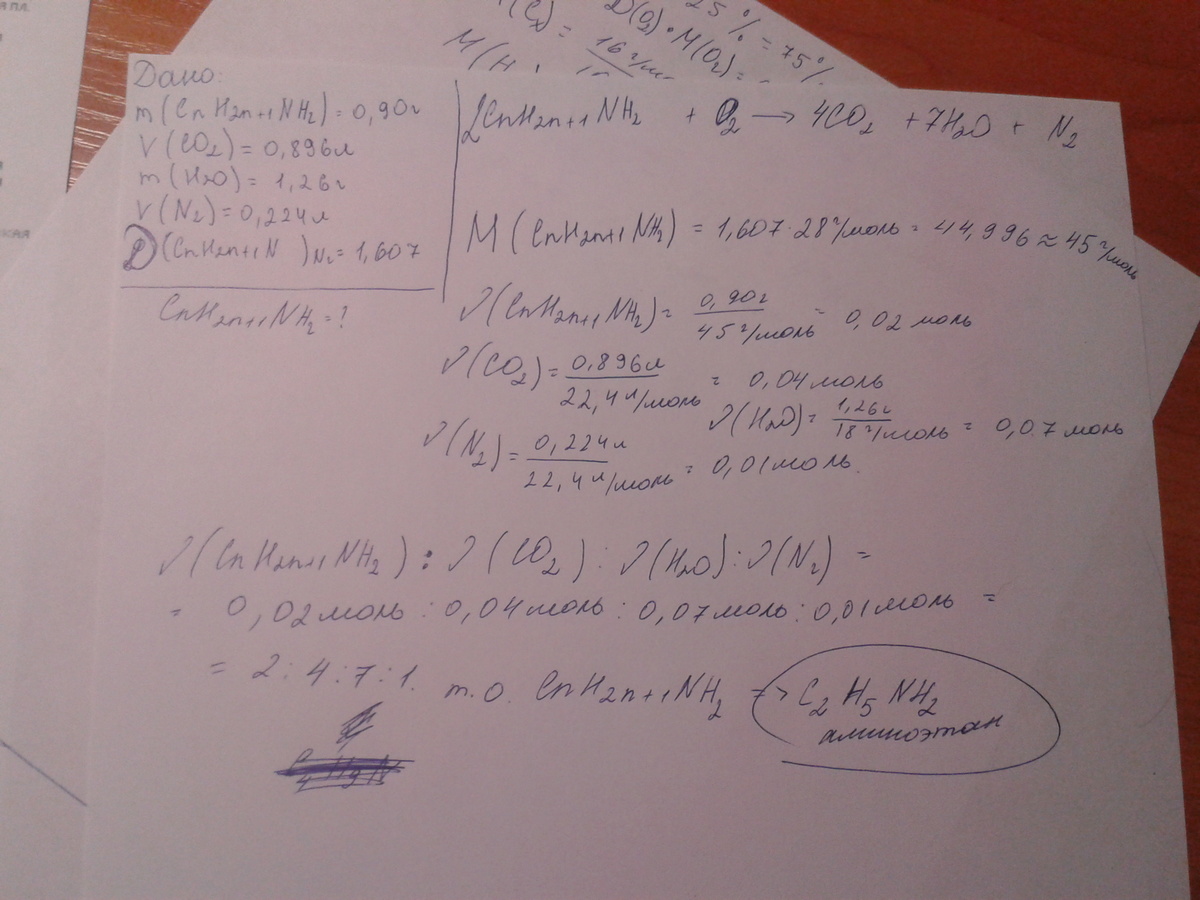 (C?) = D(O2)·M(O2) = 25% = 75%
16 г/м
M(H
Дано:
m(CnH2n+1NH2) = 0,90г
V(CO2) = 0,896л
m(H2O) = 1,26г
V(N2) = 0,224л
D(CnH2n+1N )N2 = 1,607
CnH2n+1NH2 = ?
2CnH2n+1NH2 + O2 → 4CO2 + 7H2O + N2
M(CnH2n+1NH2) = 1,607·28 г/моль = 44,996 ≈ 45 г/моль
ν(CnH2n+1NH2) = 0,90г / 45 г/моль = 0,02 моль
ν(CO2) = 0,896л / 22,4 л/моль = 0,04 моль
ν(H2O) = 1,26г / 18 г/моль = 0,07 моль
ν(N2) = 0,224л / 22,4 л/моль = 0,01 моль.
ν(CnH2n+1NH2) : ν(CO2) : ν(H2O) : ν(N2) =
= 0,02 моль : 0,04 моль : 0,07 моль : 0,01 моль =
= 2 : 4 : 7 : 1. т.о. CnH2n+1NH2 => C2H5NH2
аминоэтан